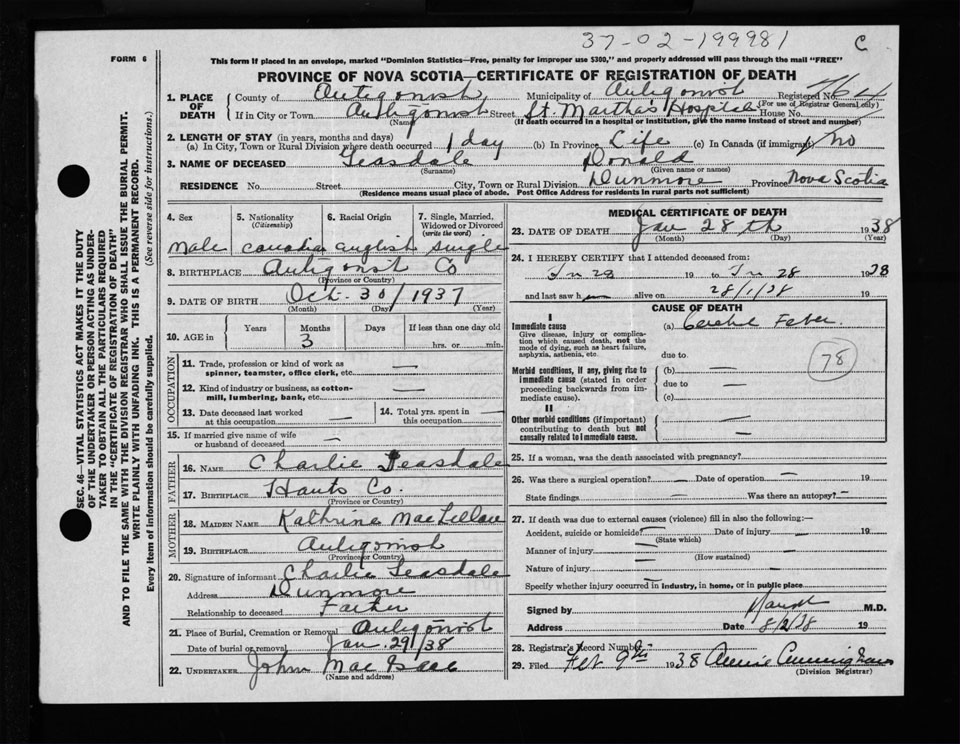 37-02-199981
C
FORM 6
This form if placed in an envelope, marked "Dominion Statistics—Free, penalty for improper use $300," and properly addressed will pass through the mail "FREE"
PROVINCE OF NOVA SCOTIA—CERTIFICATE OF REGISTRATION OF DEATH
1. PLACE OF DEATH
County of Antigonish Municipality of Antigonish Registered No.
(For use of Registrar General only)
If in City or Town Antigonish Street St. Martha's Hospital House No.
(Name) (If death occurred in a hospital or institution, give the name instead of street and number)
2. LENGTH OF STAY (in years, months and days)
(a) In City, Town or Rural Division where death occurred 1 day (b) In Province Life (c) In Canada (if immigrant) no
3. NAME OF DECEASED Teasdale Donald
(Surname) (Given name or names)
RESIDENCE No. Street City, Town or Rural Division Dunmore Province Nova Scotia
(Residence means usual place of abode. Post Office Address for residents in rural parts not sufficient)
4. Sex
male
5. Nationality
(Citizenship)
6. Racial Origin
english
7. Single, Married, Widowed or Divorced
(write the word)
single
8. BIRTHPLACE Antigonish Co
(Province or Country)
9. DATE OF BIRTH Oct. 30/1937
(Month) (Day) (Year)
10. AGE in
Years Months Days If less than one day old
3 hrs. or min.
OCCUPATION
11. Trade, profession or kind of work as spinner, teamster, office clerk, etc. —
12. Kind of industry or business, as cotton-mill, lumbering, bank, etc. —
13. Date deceased last worked at this occupation —
14. Total yrs. spent in this occupation —
15. If married give name of wife or husband of deceased —
FATHER
16. NAME Charlie Teasdale
17. BIRTHPLACE Hants Co.
(Province or Country)
MOTHER
18. MAIDEN NAME Kathrine MacLellan
19. BIRTHPLACE Antigonish
(Province or Country)
20. Signature of informant Charlie Teasdale
Address Dunmore
Relationship to deceased Father
21. Place of Burial, Cremation or Removal Antigonish
Date of burial or removal Jan. 29/38
22. UNDERTAKER John MacIsaac
(Name and address)
MEDICAL CERTIFICATE OF DEATH
23. DATE OF DEATH Jan 28th 1938
(Month) (Day) (Year)
24. I HEREBY CERTIFY that I attended deceased from
19 to 28 19
and last saw h alive on 28/1/38 19
CAUSE OF DEATH
I
Immediate cause
Give disease, injury or complication which caused death, not the mode of dying, such as heart failure, asphyxia, asthenia, etc.
(a)
due to
Morbid conditions, if any, giving rise to immediate cause (stated in order proceeding backwards from immediate cause)
(b) —
due to —
(c)
78
II
Other morbid conditions (if important) contributing to death but not causally related to immediate cause. —
25. If a woman, was the death associated with pregnancy?
26. Was there a surgical operation? — Date of operation —
State findings Was there an autopsy? —
27. If death was due to external causes (violence) fill in also the following:—
Accident, suicide or homicide? — Date of injury — 19
(State which)
Manner of injury —
(How sustained)
Nature of injury —
Specify whether injury occurred in industry, in home, or in public place —
Signed by M.D.
Address Date 8/2/38 19
28. Registrar's Record Number
29. Filed Feb 9th 1938 Annie Cunningham
(Division Registrar)
SEC. 46—VITAL STATISTICS ACT MAKES IT THE DUTY
OF THE UNDERTAKER OR PERSON ACTING AS UNDER-
TAKER TO OBTAIN ALL THE PARTICULARS REQUIRED
IN THE "CERTIFICATE OF REGISTRATION OF DEATH"
AND TO FILE THE SAME WITH THE DIVISION REGISTRAR WHO SHALL ISSUE THE BURIAL PERMIT.
WRITE PLAINLY WITH UNFADING INK. THIS IS A PERMANENT RECORD.
Every item of information should be carefully supplied. (See reverse side for instructions.)